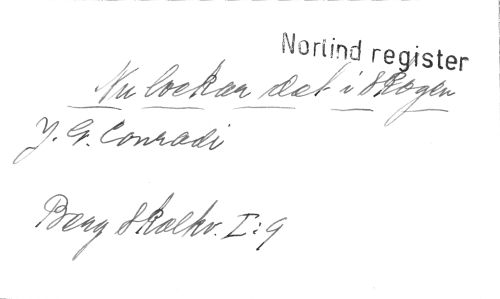 Norlind register
Nu lockar det i skogen
J. G. Conradi
Berg Skolkv. I:9